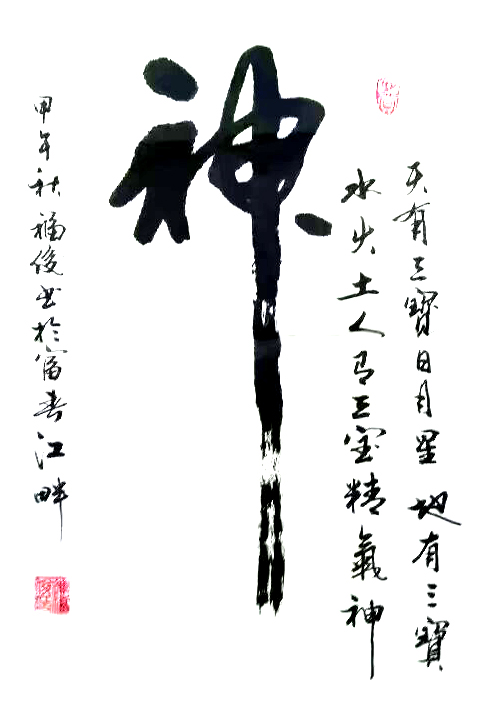 天有三寶日月星地有三寶
水火土人有三宝精氣神
神
甲午秋福俊书於富春江畔